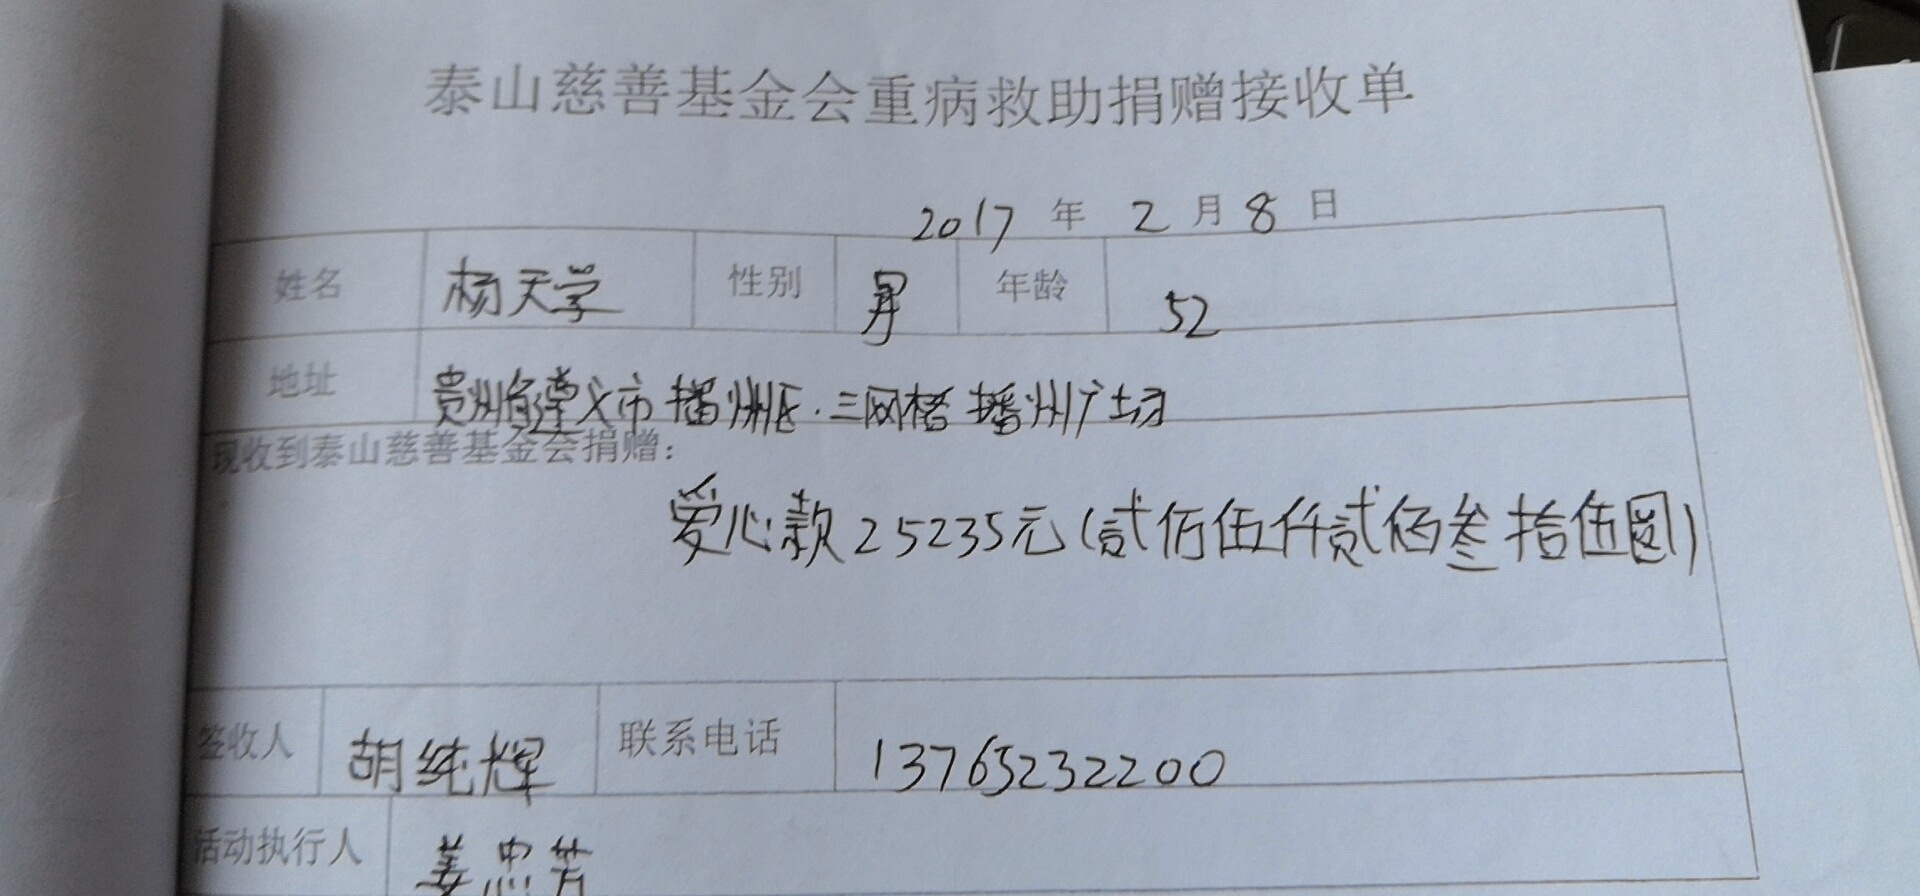 泰山慈善基金会重病救助捐赠接收单
2017 年 2 月 8 日
姓名 杨天学 性别 男 年龄 52
地址 贵州省遵义市播州区.三网格播州广场
现收到泰山慈善基金会捐赠：
爱心款25235元(贰佰伍仟贰佰叁拾伍圆)
签收人 胡纯辉 联系电话 13765232200
活动执行人 姜忠芳